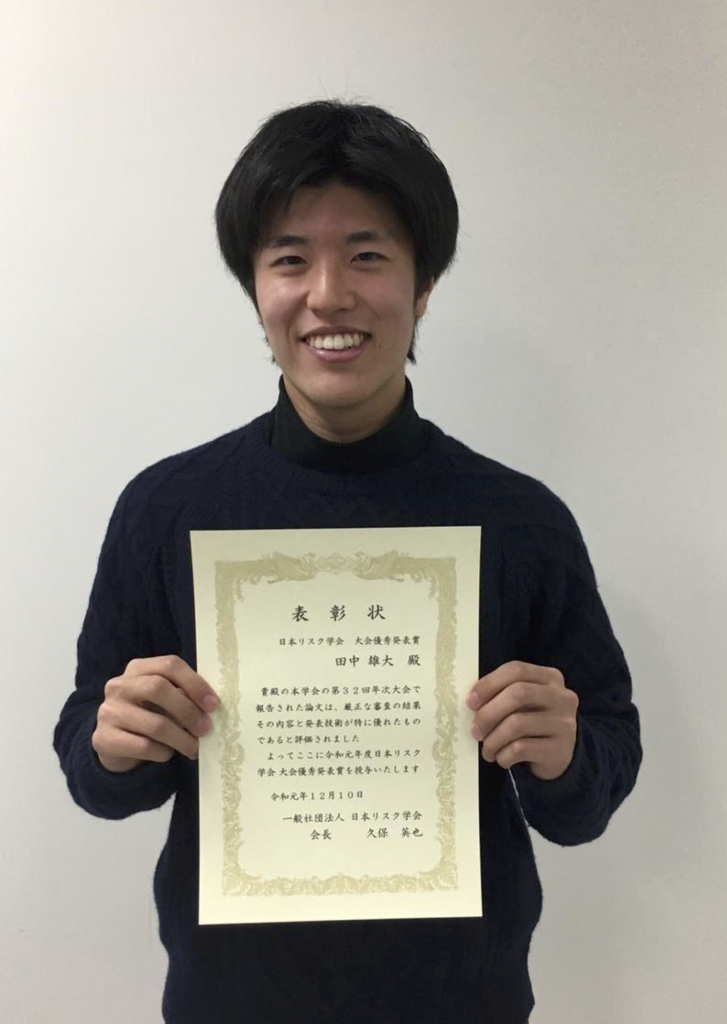 表彰状
日本リスク学会 大会優秀発表賞
田中 雄大 殿
貴殿の本学会の第32回年次大会で
報告された論文は、厳正な審査の結果
その内容と発表技術が特に優れたもの
であると評価されました
よってここに令和元年度日本リスク
学会 大会優秀発表賞を授与いたします
令和元年12月10日
一般社団法人 日本リスク学会
会長 久保 英也